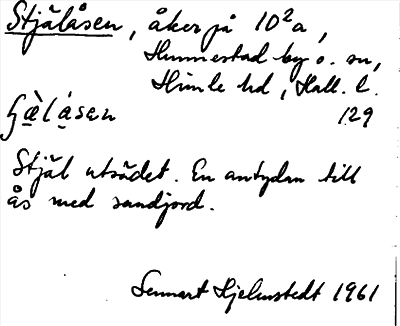 Stjälåsen, åker på 10²a,
Hunnestad by o. sn,
Himle hd, Hall. l.
ʃæ̀lásen 129
Stjäl utsädet. En antydan till
ås med sandjord.
Lennart Hjelmstedt 1961